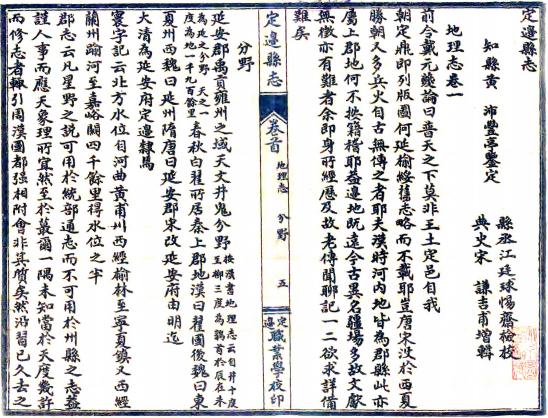 定邊縣志
知縣黃　沛豐亭鑒定
縣丞江廷球惕齋檢校
典史宋　謙吉甫增輯
地理志卷一
前令戴元夔論曰普天之下莫非王土定邑自我
朝定鼎即列版圖何延榆綏舊志略而不載耶豈唐宋没於西夏
勝朝又多兵火自古無傳之者耶夫漢時河内地皆為郡縣此亦
屬上郡地何不按籍稽耶益邊地既遠今古異名疆場多故文獻
無徵亦有難者余即身所經歷及故老傳聞聊記一二欲求詳備
難矣
定邊縣志
卷首
地理志
分野
五
定邊職業學校印
分野
延安郡禹貢雍州之域天文井鬼分野按漢書地理志云自井十度至柳三度為鶉首於辰在未為延之分野天之一度為地一千九百餘里春秋白翟所居秦上郡地漢曰翟國後魏曰東
夏州西魏曰延州隋唐曰延安郡宋改延安府由明迄
大清為延安府定邊隸焉
寰宇記云北方水位自河曲黃甫川西經榆林至寧夏鎮又西經
蘭州踰河至嘉峪關四千餘里得水位之半
郡志云凡星野之說可用於統部通志而不可用於州縣之志益
謹人事而應天象理所宜然至於蕞爾一隅未知當於天度幾許
而修志者輒引周漢國都强相附會非其質矣然沿習已久去之